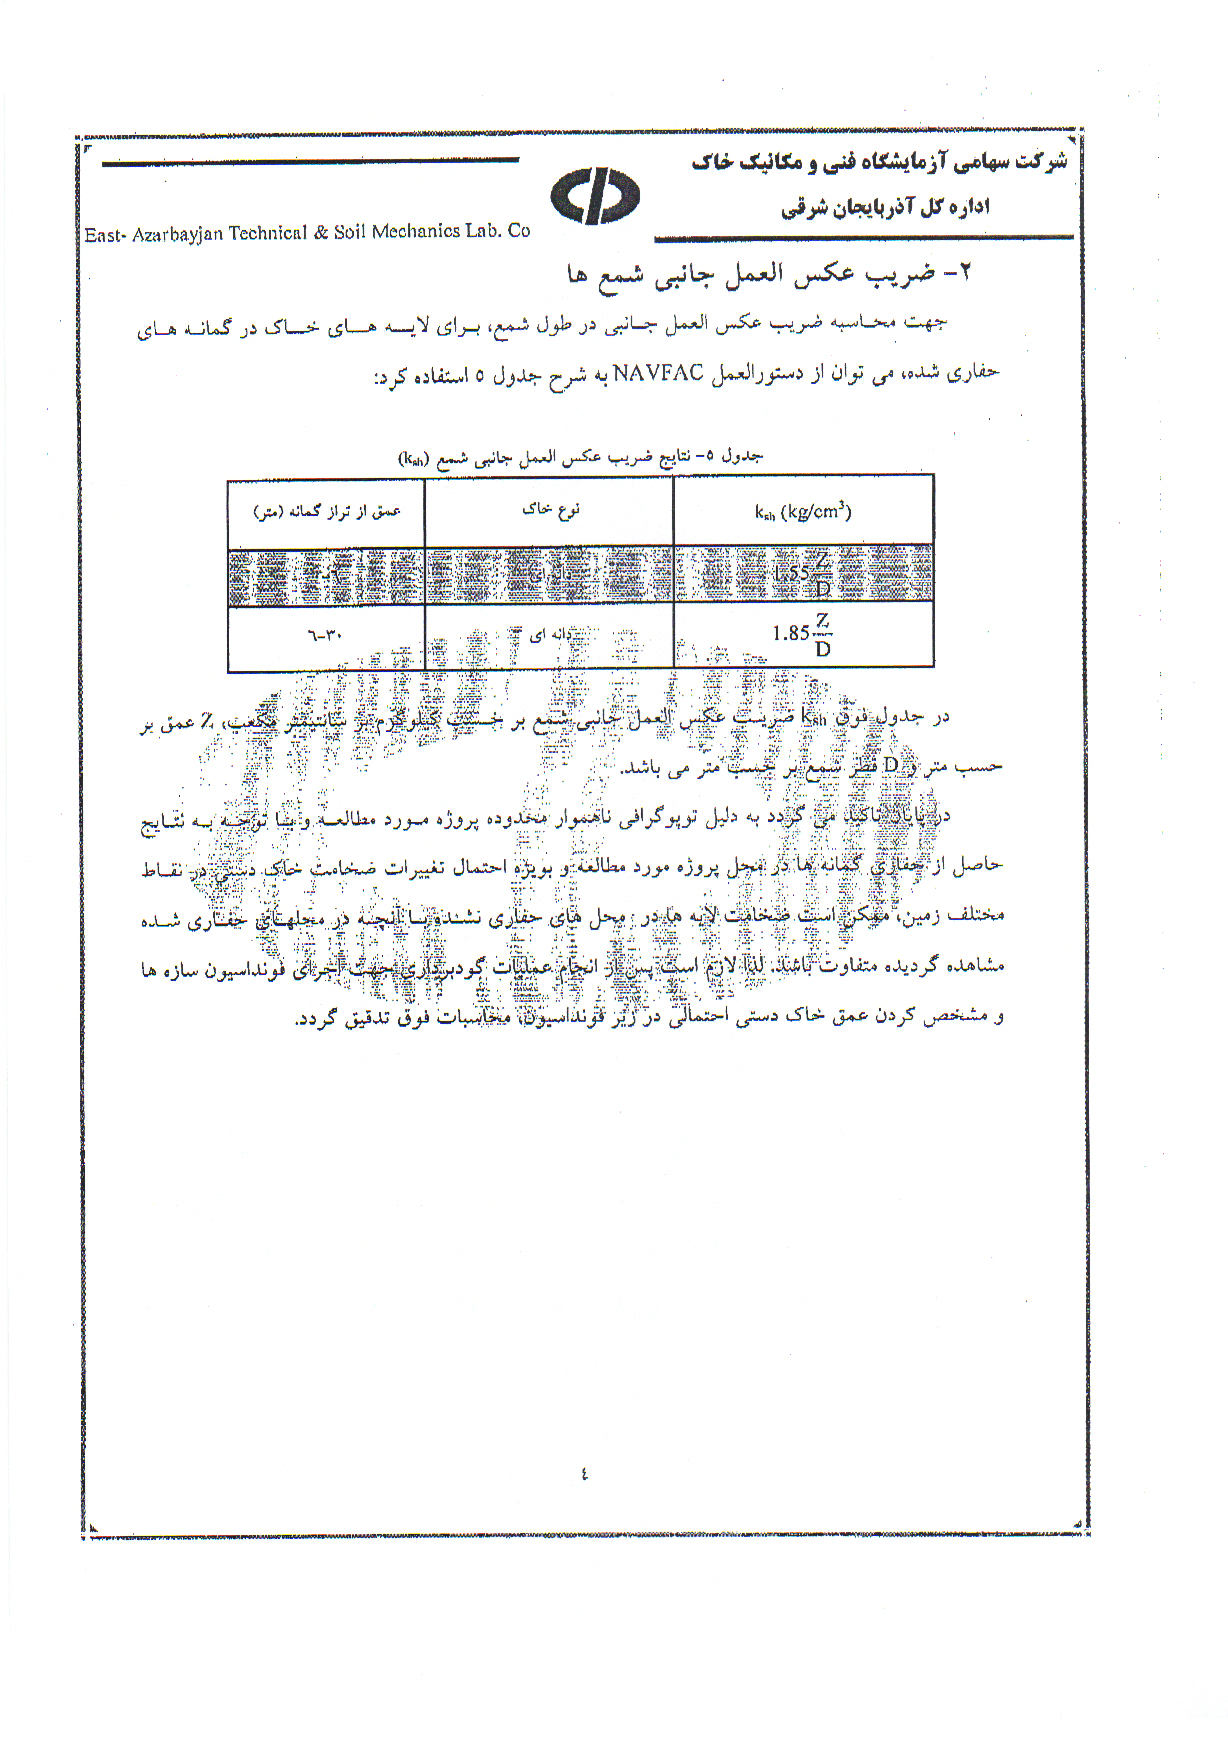 شرکت سهامی آزمایشگاه فنی و مکانیک خاک
اداره کل آذربایجان شرقی
East- Azarbayjan Technical & Soil Mechanics Lab. Co
۲- ضریب عکس العمل جانبی شمع ها
جهت محاسبه ضریب عکس العمل جانبی در طول شمع، برای لایه های خاک در گمانه های
حفاری شده، می توان از دستورالعمل NAVFAC به شرح جدول ۵ استفاده کرد:
جدول ۵- نتایج ضریب عکس العمل جانبی شمع (ksh)
عمق از تراز گمانه (متر) نوع خاک ksh (kg/cm³)
دانه ای 1.55 Z/D
۶-۳۰ دانه ای 1.85 Z/D
در جدول فوق ksh ضریب عکس العمل جانبی شمع بر حسب کیلوگرم بر سانتیمتر مکعب، Z عمق بر
حسب متر و D قطر شمع بر حسب متر می باشد.
در پایان تاکید می گردد به دلیل توپوگرافی ناهموار محدوده پروژه مورد مطالعه و با توجه به نتایج
حاصل از حفاری گمانه ها در محل پروژه مورد مطالعه و بویژه احتمال تغییرات ضخامت خاک دستی در نقاط
مختلف زمین، ممکن است ضخامت لایه ها در محل های حفاری نشده با آنچه در محلهای حفاری شده
مشاهده گردیده متفاوت باشد. لذا لازم است پس از انجام عملیات گودبرداری جهت اجرای فونداسیون سازه ها
و مشخص کردن عمق خاک دستی احتمالی در زیر فونداسیون، محاسبات فوق تدقیق گردد.
٤